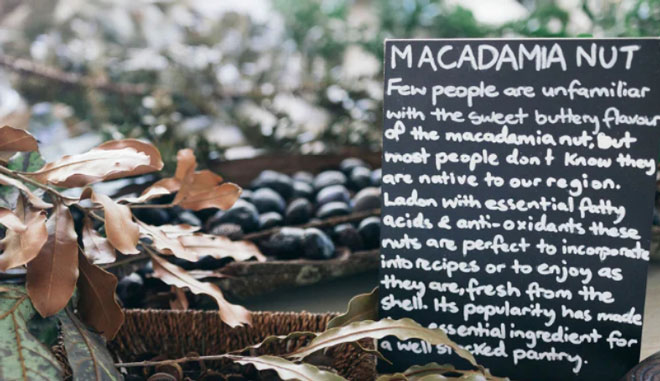 MACADAMIA NUT
Few people are unfamiliar
with the sweet buttery flavour
of the macadamia nut, but
most people don't know they
are native to our region.
Ladon with essential fatty
acids & anti-oxidants these
nuts are perfect to incorporate
into recipes or to enjoy as
they are, fresh from the
shell. Its popularity has made
essential ingredient for
a well stocked pantry.